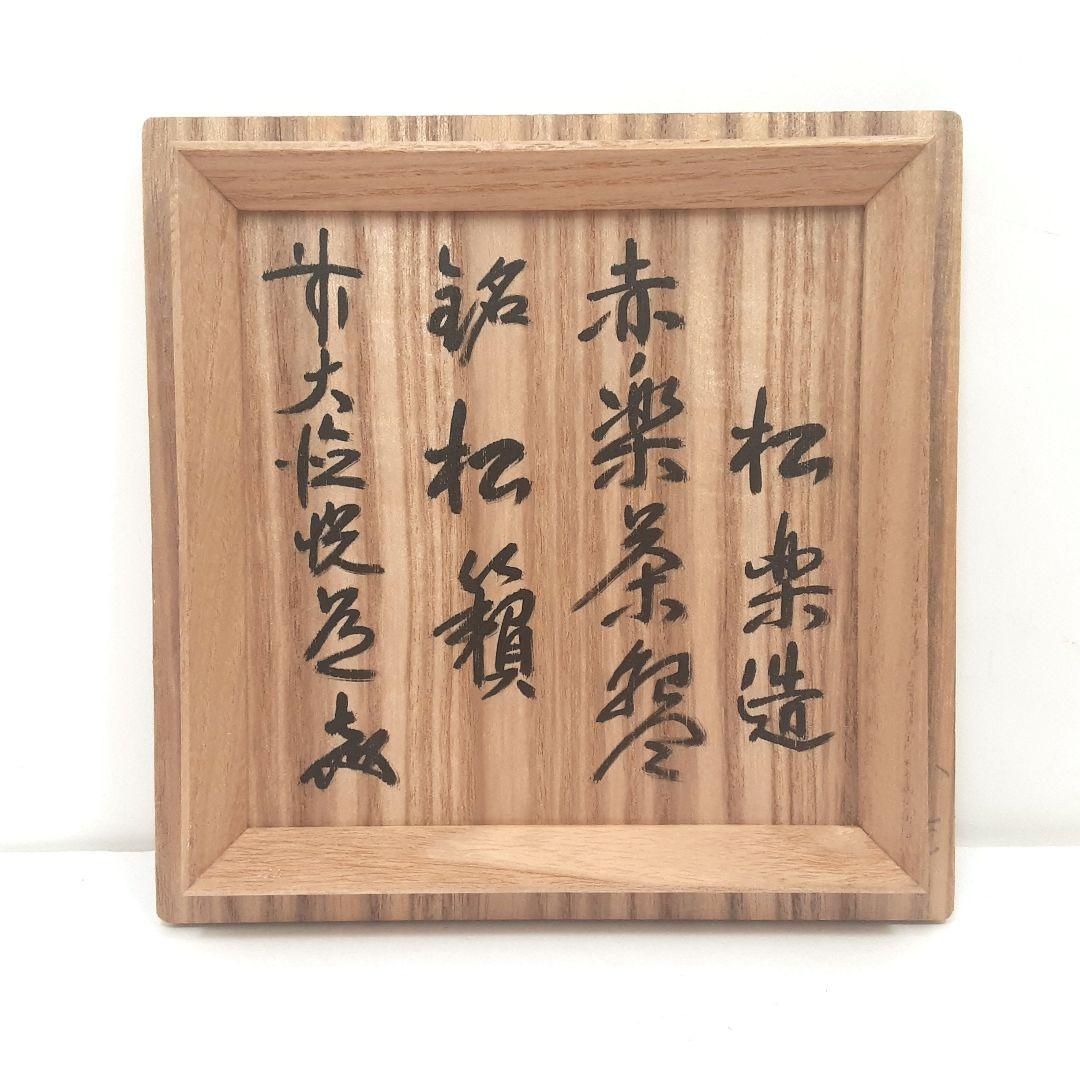 松楽造
赤楽茶碗
銘松籟
前大徳悦道